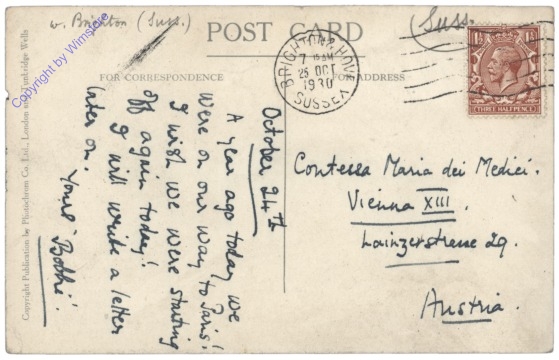 w. Brighton (Suss.)
POST CARD
(Suss.
FOR CORRESPONDENCE
FOR ADDRESS
BRIGHTON & HOVE
7 15 AM
25 OCT
1930
SUSSEX
1½D
1½D
THREE HALFPENCE
October 24th
A year ago today we
were on our way to Paris!
I wish we were starting
off again today!
I will write a letter
later on.
Yours Bobbie!
Contessa Maria dei Medici.
Vienna XIII.
Lainzerstrasse 29.
Austria.
Copyright Publication by Photochrom Co. Ltd., London and Tunbridge Wells
Copyright by Wimstore